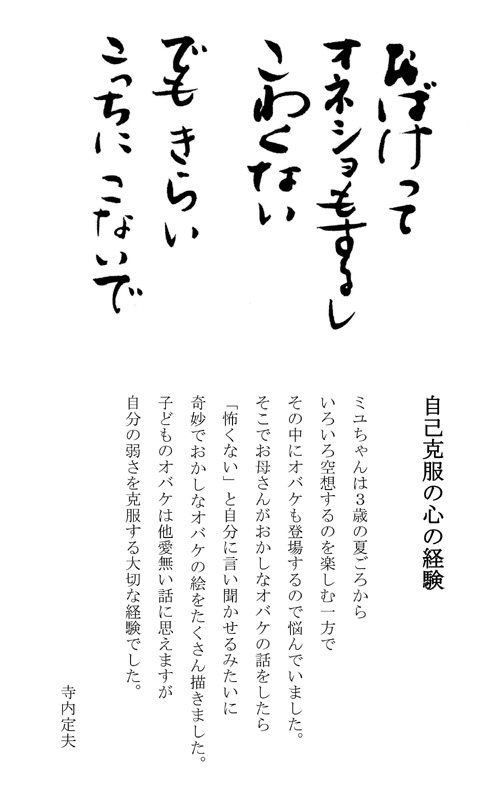 おばけって
オネショもするし
こわくない
でも きらい
こっちに こないで
自己克服の心の経験
ミユちゃんは３歳の夏ごろから
いろいろ空想するのを楽しむ一方で
その中にオバケも登場するので悩んでいました。
そこでお母さんがおかしなオバケの話をしたら
「怖くない」と自分に言い聞かせるみたいに
奇妙でおかしなオバケの絵をたくさん描きました。
子どものオバケは他愛無い話に思えますが
自分の弱さを克服する大切な経験でした。
寺内定夫